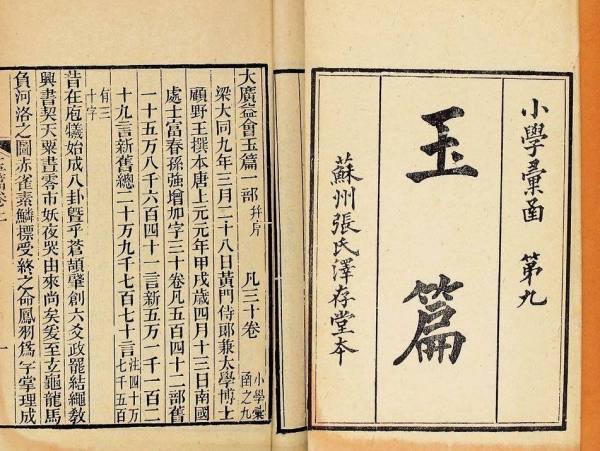 小學彙函 第九
玉篇
蘇州張氏澤存堂本
大廣益會玉篇一部并序 凡三十卷 小學彙函之九
梁大同九年三月二十八日黃門侍郎兼太學博士
顧野王撰本唐上元元年甲戌歲四月十三日南國
處士富春孫強增加字三十卷凡五百四十二部舊
一十五万八千六百四十一言新五万一千一百二
十九言新舊總二十万九千七百七十言注四十万七千五百
有三十字
昔在庖犧始成八卦曁乎蒼頡肇創六爻政罷結繩教
興書契天粟晝零市妖夜哭由來尚矣爰至玄龜龍馬
負河洛之圖赤雀素鱗摽受終之命鳳羽爲字掌理成
一